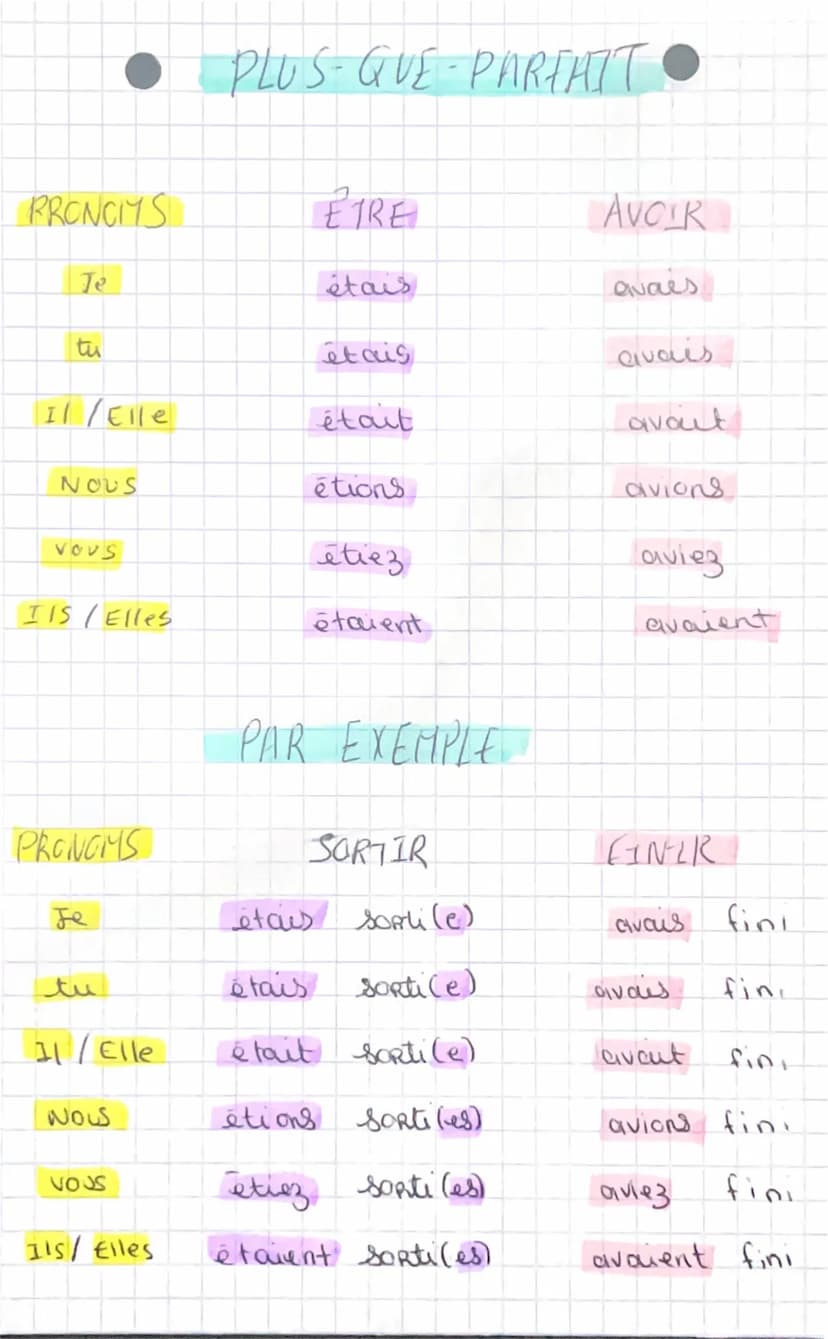 PLUS-QUE-PARFAIT
PRONOMS ÊTRE AVOIR
Je étais avais
tu étais avais
Il / Elle était avait
NOUS étions avions
vous étiez aviez
Ils / Elles étaient avaient
PAR EXEMPLE
PRONOMS SORTIR FINIR
Je étais sorti(e) avais fini
tu étais sorti(e) avais fini
Il / Elle était sorti(e) avait fini
NOUS étions sorti(es) avions fini
vous étiez sorti(es) aviez fini
Ils / Elles étaient sorti(es) avaient fini